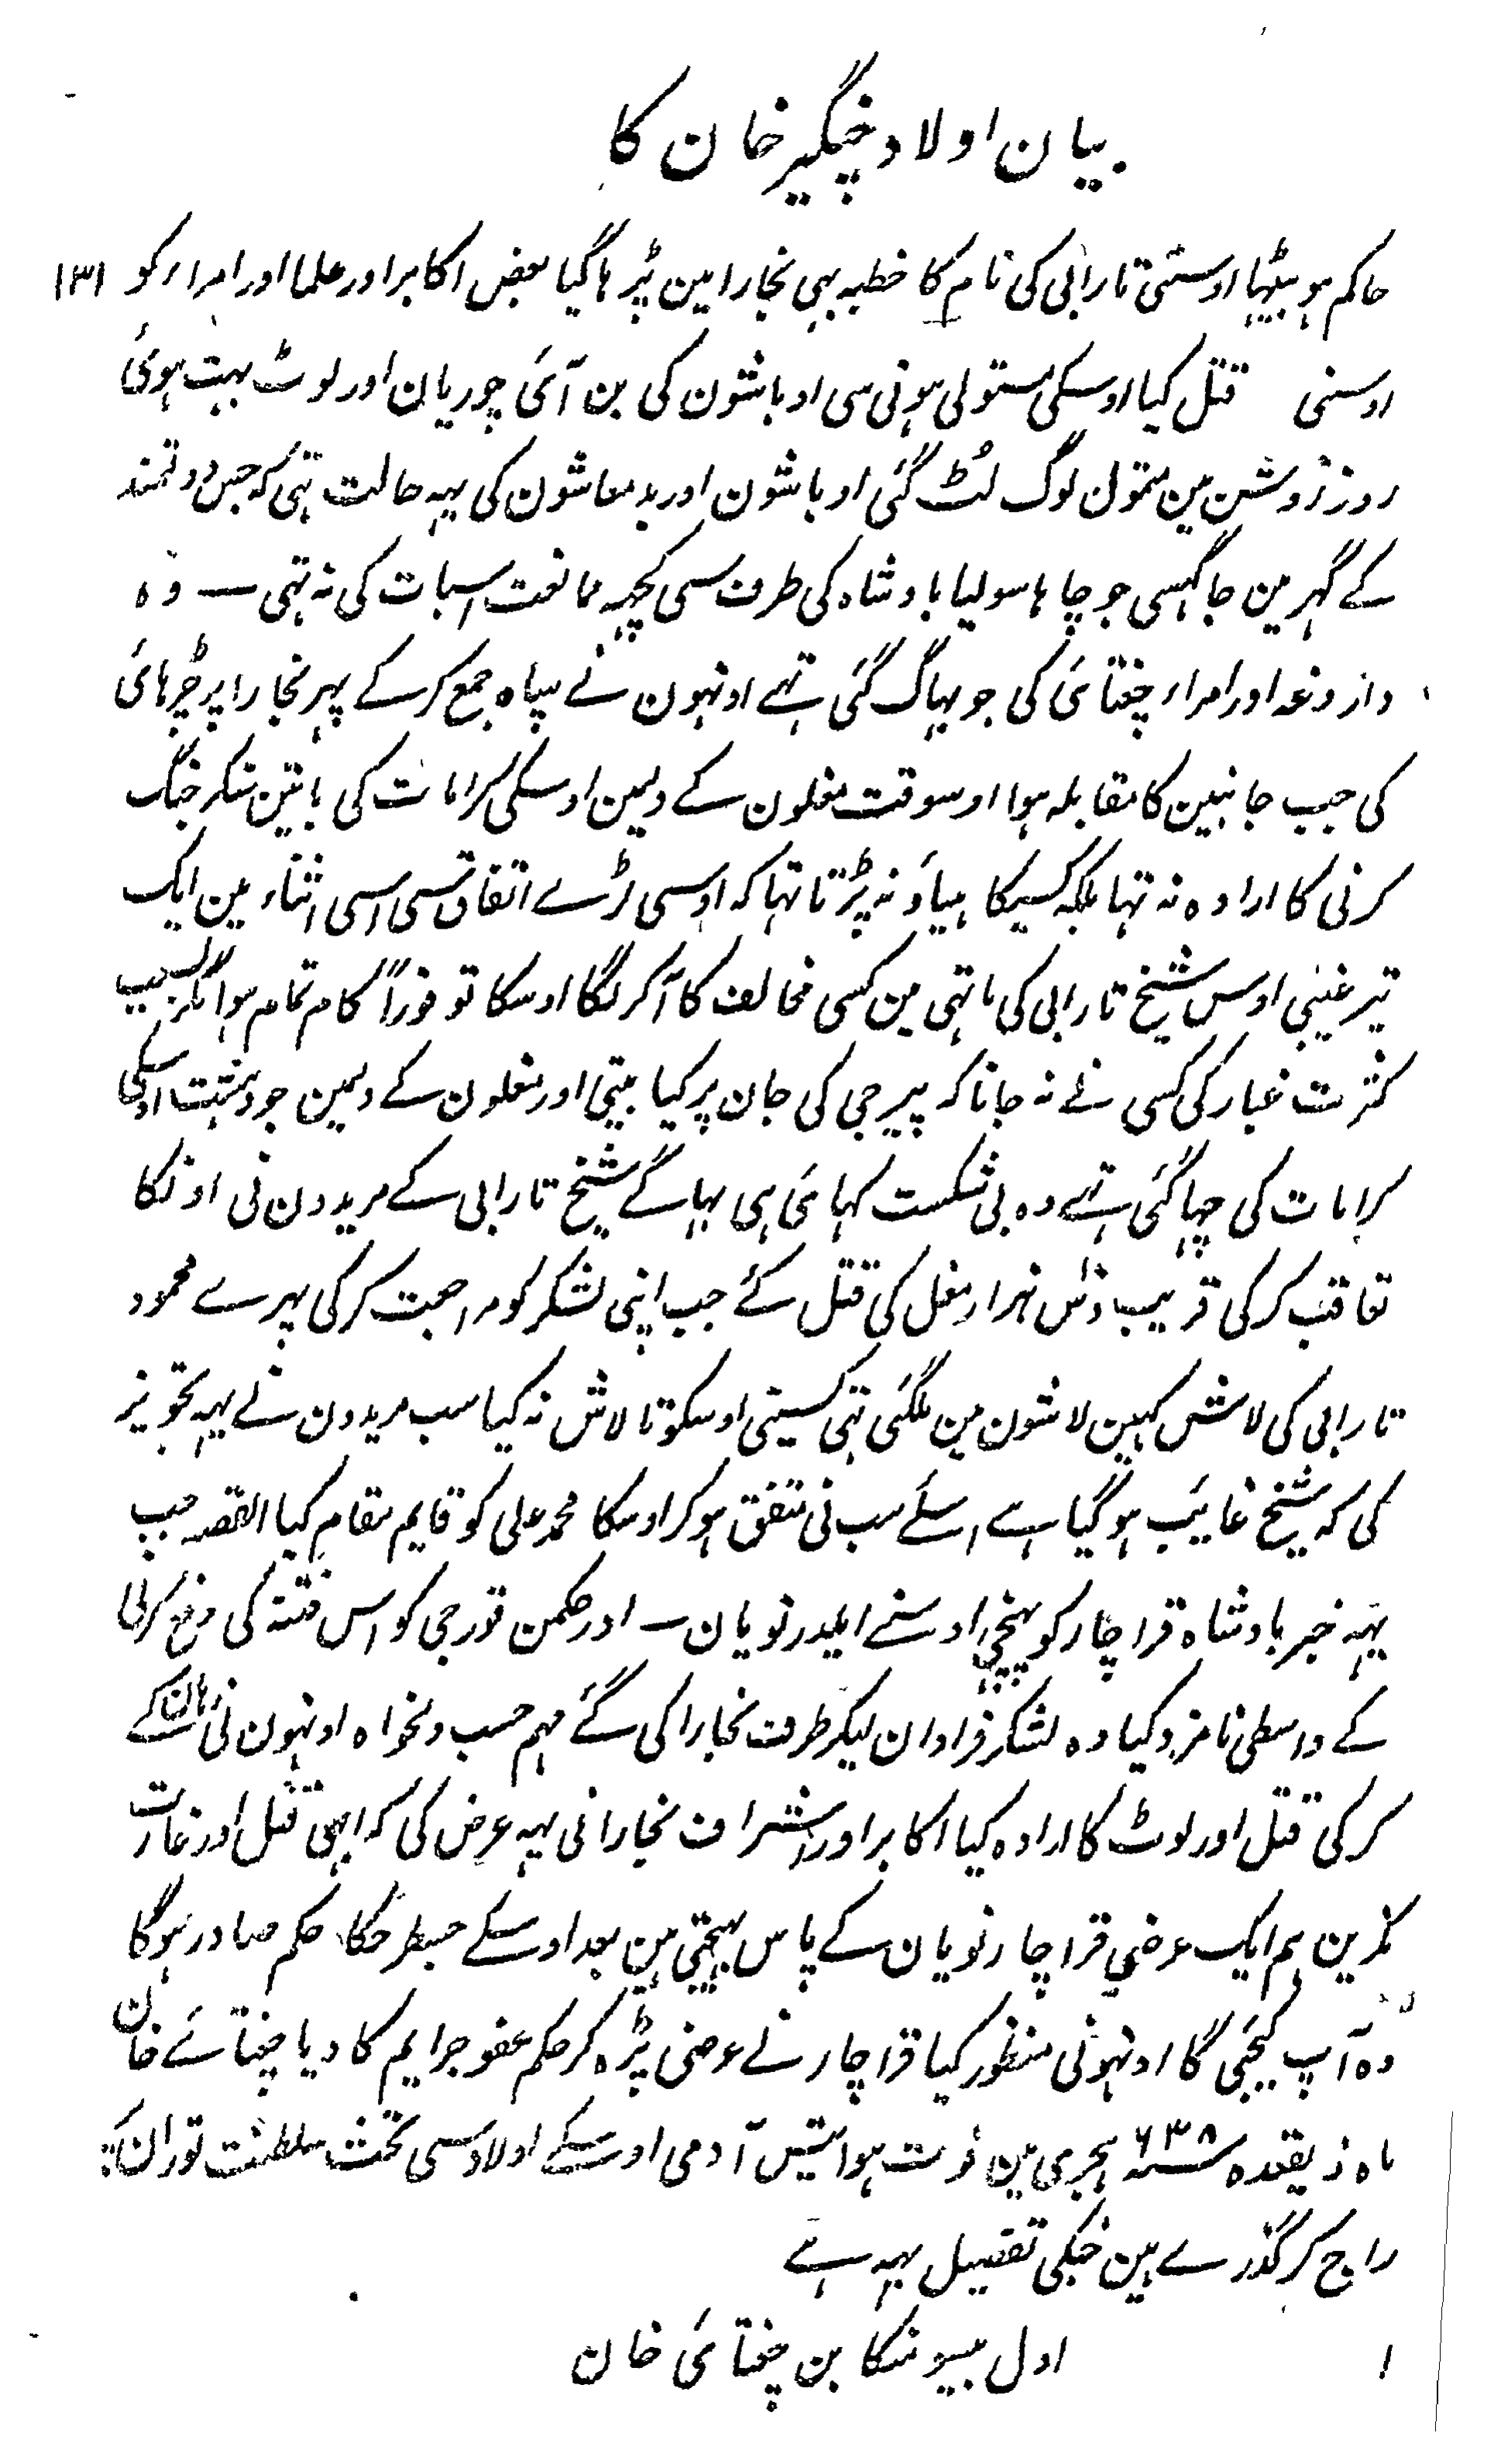 بیان اولاد چنگیز خان کا
حاکم ہو بیٹھا اوستی تارابی کی نام کا خطبہ بہی بخارا مین پڑہا گیا بعض اکابر اور علما اور امراء کو ۱۳۱
اوسنی قتل کیا اوسکی مستولی ہونی سی اوباشون کی بن آئی چوریان اور لوٹ بہت ہوئی
روز روشن مین متمول لوگ لٹ گئی اوباشون اور بدمعاشون کی یہہ حالت تہی کہ جس دولتمند
کے گہر مین جا گہسی جو چاہا سو لیا بادشاہ کی طرف سی کچہہ ممانعت اسبات کی نہ تہی — وہ
داروغہ اور امراء چغتائی کی جو بہاگ گئی تہے اونہون نے سپاہ جمع کر کے پہر بخارا پر چڑہائی
کی جب جانبین کا مقابلہ ہوا اوسوقت مغلون کے دلمین اوسکی کرامات کی باتین سنکر جنگ
کرنی کا ارادہ نہ تہا بلکہ کسیکا ہیاؤ نہ پڑتا تہا کہ اوسی لڑے اتفاق سی اسی اثناء مین ایک
تیر غیبی اوس شیخ تارابی کی ماتہی مین کسی مخالف کا آکر لگا اوسکا تو فوراً کام تمام ہوا مگر بسبب
کثرت غبار کی کسی نے نہ جانا کہ پیر جی کی جان پر کیا بیتی اور مغلون کے دلمین جو دہشت اوسکی
کرامات کی چہا گئی تہے وہ بی شکست کہائی ہی بہاگے شیخ تارابی کے مریدون نی اونکا
تعاقب کر کی قریب دس ہزار مغل کی قتل کئے جب اپنی لشکر کو مراجعت کر کی پہرے محمود
تارابی کی لاش کہین لاشون مین ملگئی تہی کسینی اوسکو تالاش نہ کیا سب مریدون نے یہہ تجویز
کی کہ شیخ غائب ہو گیا ہے اسلئے سب نی متفق ہو کر اوسکا محمد علی کو قایم مقام کیا القصہ جب
یہہ خبر بادشاہ قراچار کو پہنچی اوسنے ایلدر نویان — اور حکمن قورجی کو اس فتنہ کی رفع کرنی
کے واسطی نامزد کیا وہ لشکر فراوان لیکر طرف بخارا کی گئے مہم حسب دلخواہ اونہون نی وہان کے
کر کی قتل اور لوٹ کا ارادہ کیا اکابر اور اشراف بخارا نی یہہ عرض کی کہ ابہی قتل اور غارت
نکرین ہم ایک عرضی قراچار نویان کے پاس بہیجتی ہین بعد اوسکے جسطرحکا حکم صادر ہوگا
وہ آپ کیجی گا اونہونی منظور کیا قراچار نے عرضی پڑہ کر حکم عفو جرایم کا دیا چغتائے خان
ماہ ذیقعدہ سنہ ۶۳۸ ہجری مین فوت ہوا تیس آدمی اوسکے اولاد سی تخت سلطنت توران
راج کر گذرے ہین جنکی تفصیل یہہ ہے
۱ اول بیسونکا بن چغتائی خان